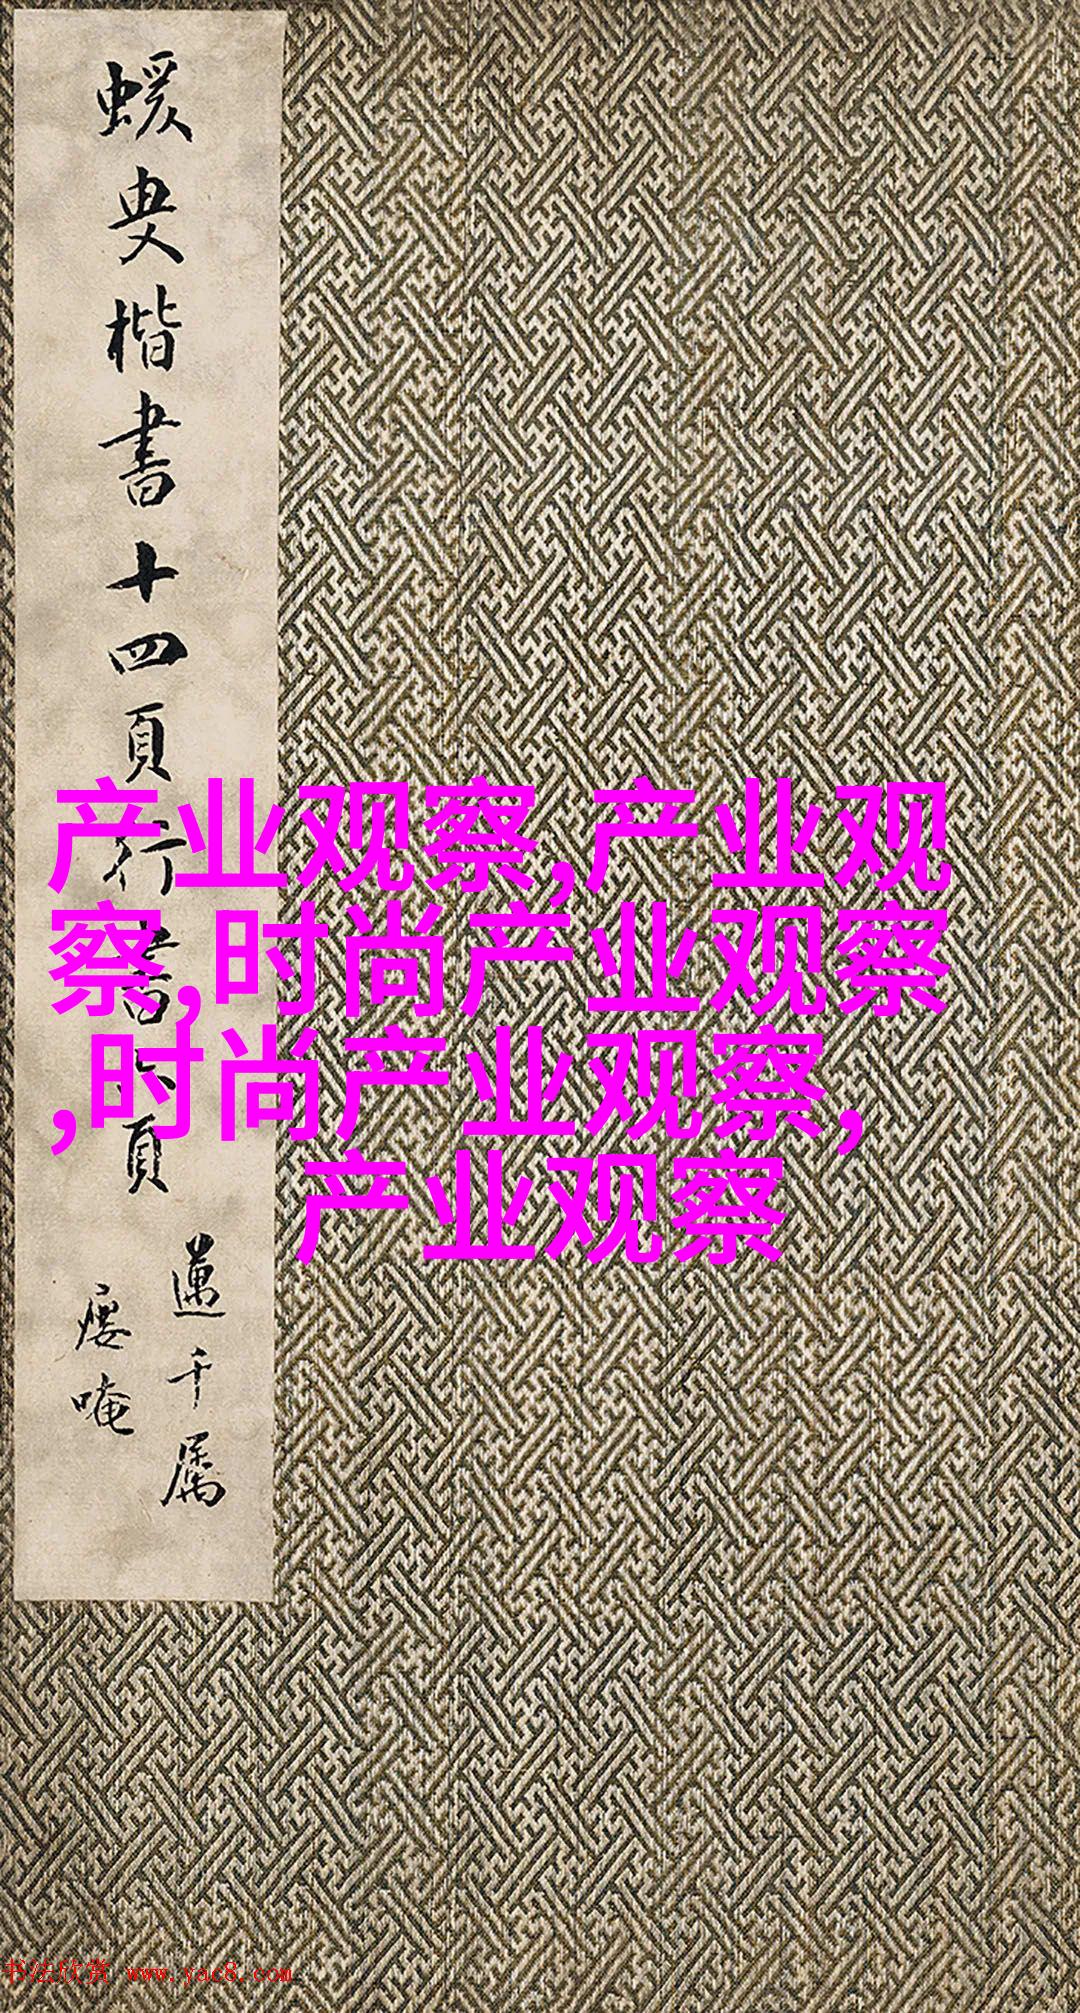 蝯叟楷書十四頁行書六頁
千屬
产业观察,产业观
察,时尚产业观察
,时尚产业观察,
产业观察
书法欣赏 www.yac8.com